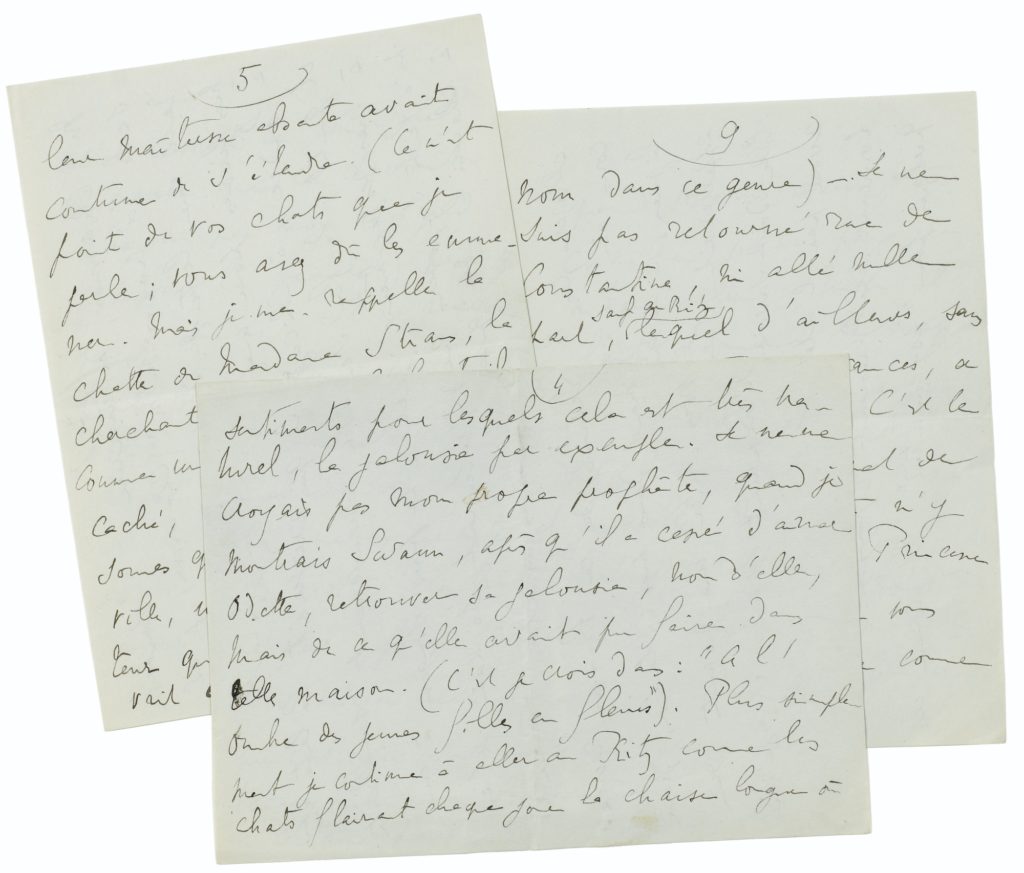 5
leur Maîtresse absente avait
coutume de s'étendre. (Ce n'est
point de vos chats que je
parle ; vous avez dû les emme-
ner. Mais je me rappelle la
chatte de Madame Straus, la
cherchant
comme un
caché,
ville,
teur qu
vrit
9
nom dans ce genre) — Je ne
suis pas retourné rue de
Constantine, ni allé nulle
part, sauf au Ritz, lequel d'ailleurs, sans
ances, a
C'est le
et de
n'y
Princesse
vous
comme
4
sentiments pour lesquels cela est très na-
turel, la jalousie par exemple. Je ne me
croyais pas mon propre prophète, quand je
montrais Swann, après qu'il a cessé d'aimer
Odette, retrouver sa jalousie, non d'elle,
mais de ce qu'elle avait pu faire dans
telle maison. (C'est je crois dans : "A l'
ombre des jeunes filles en fleurs"). Plus simple
ment je continue à aller au Ritz comme les
chats flairant chaque jour la chaise longue où